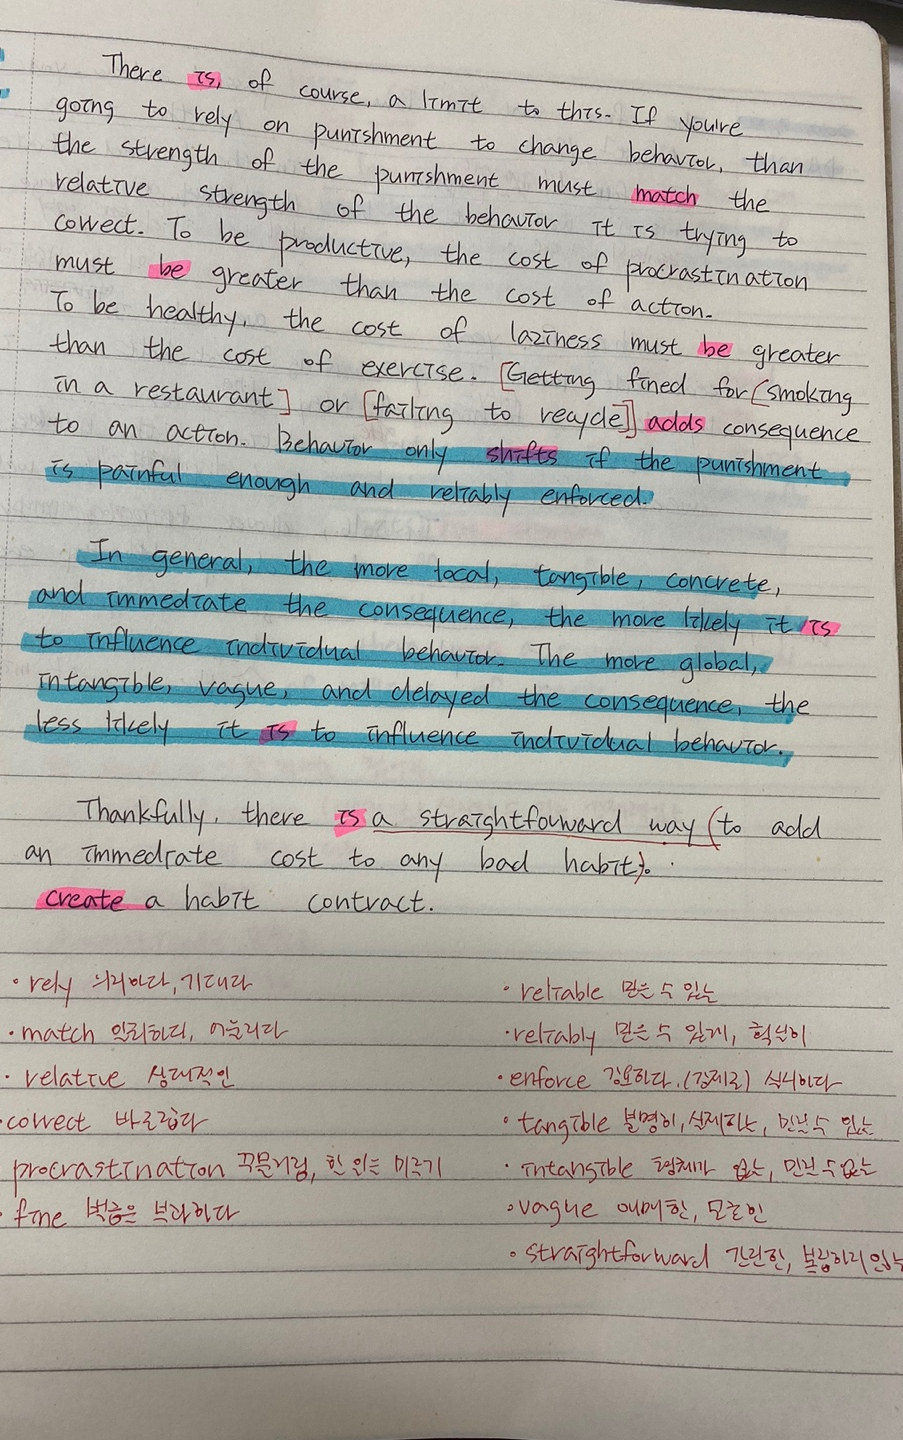 There is, of course, a limit to this. If you're
going to rely on punishment to change behavior, than
the strength of the punishment must match the
relative strength of the behavior it is trying to
correct. To be productive, the cost of procrastination
must be greater than the cost of action.
To be healthy, the cost of laziness must be greater
than the cost of exercise. [Getting fined for [smoking
in a restaurant] or [failing to recycle]] adds consequence
to an action. Behavior only shifts if the punishment
is painful enough and reliably enforced.
In general, the more local, tangible, concrete,
and immediate the consequence, the more likely it is
to influence individual behavior. The more global,
intangible, vague, and delayed the consequence, the
less likely it is to influence individual behavior.
Thankfully, there is a straightforward way (to add
an immediate cost to any bad habit).
create a habit contract.
· rely 의지하다, 기대다
· match 일치하다, 어울리다
· relative 상대적인
· correct 바로잡다
procrastination 꾸물거림, 할 일을 미루기
· fine 벌금을 부과하다
· reliable 믿을 수 있는
· reliably 믿을 수 있게, 확실히
· enforce 강요하다. (강제로) 시키다
· tangible 분명히, 실재하는, 만질 수 있는
· intangible 형체가 없는, 만질 수 없는
· vague 애매한, 모호한
· straightforward 간단한, 복잡하지 않은